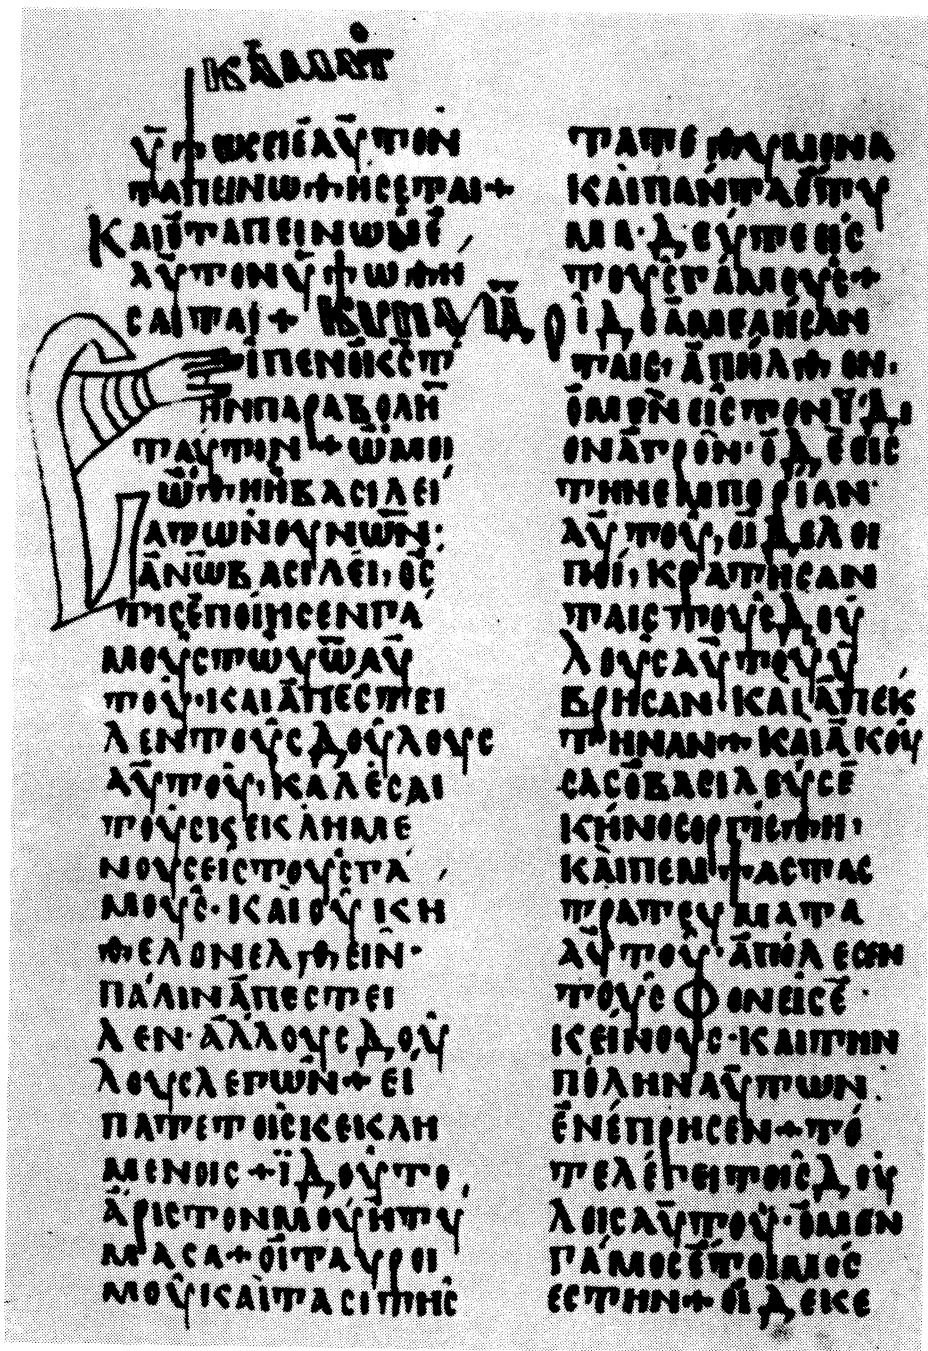 ΥΨΩϹΕΙ ΕΑΥΤΟΝ
ΤΑΠΕΙΝΩΘΗϹΕΤΑΙ+
ΚΑΙ Ο ΤΑΠΕΙΝΩΝ Ε
ΑΥΤΟΝ ΥΨΩΘΗ
ϹΕΤΑΙ+
ΕΙΠΕΝ Ο Κ̅Ϲ̅ Τ
ΗΝ ΠΑΡΑΒΟΛΗ
ΤΑΥΤΗΝ+ ΩΜΟΙ
ΩΘΗ Η ΒΑϹΙΛΕΙ
Α ΤΩΝ ΟΥΝΩΝ·
ΑΝΩ ΒΑϹΙΛΕΙ, ΟϹ
ΤΙϹ ΕΠΟΙΗϹΕΝ ΓΑ
ΜΟΥϹ ΤΩ ΥΩ ΑΥ
ΤΟΥ· ΚΑΙ ΑΠΕϹΤΕΙ
ΛΕΝ ΤΟΥϹ ΔΟΥΛΟΥϹ
ΑΥΤΟΥ, ΚΑΛΕϹΑΙ
ΤΟΥϹ ΚΕΚΛΗΜΕ
ΝΟΥϹ ΕΙϹ ΤΟΥϹ ΓΑ
ΜΟΥϹ· ΚΑΙ ΟΥΚ Η
ΘΕΛΟΝ ΕΛΘΕΙΝ·
ΠΑΛΙΝ ΑΠΕϹΤΕΙ
ΛΕΝ· ΑΛΛΟΥϹ ΔΟΥ
ΛΟΥϹ ΛΕΓΩΝ+ ΕΙ
ΠΑΤΕ ΤΟΙϹ ΚΕΚΛΗ
ΜΕΝΟΙϹ+ ΪΔΟΥ ΤΟ
ΑΡΙϹΤΟΝ ΜΟΥ ΗΤΥ
ΜΑϹΑ+ ΟΙ ΤΑΥΡΟΙ
ΜΟΥ ΚΑΙ ΤΑ ϹΙΤΗϹ
ΤΑ ΤΕΘΥΜΕΝΑ
ΚΑΙ ΠΑΝΤΑ ΕΤΥ
ΜΑ· ΔΕΥΤΕ ΕΙϹ
ΤΟΥϹ ΓΑΜΟΥϹ+
ΟΙ ΔΕ ΑΜΕΛΗϹΑΝ
ΤΑΙϹ, ΑΠΗΛΘΟΝ·
Ο ΜΕΝ ΕΙϹ ΤΟΝ ΪΔΙ
ΟΝ ΑΓΡΟΝ· Ο ΔΕ ΕΙϹ
ΤΗΝ ΕΜΠΟΡΙΑΝ·
ΑΥΤΟΥ, ΟΙ ΔΕ ΛΟΙ
ΠΟΙ, ΚΡΑΤΗϹΑΝ
ΤΑΙϹ ΤΟΥϹ ΔΟΥ
ΛΟΥϹ ΑΥΤΟΥ Υ
ΒΡΗϹΑΝ· ΚΑΙ ΑΠΕΚ
ΤΗΝΑΝ+ ΚΑΙ ΑΚΟΥ
ϹΑϹ Ο ΒΑϹΙΛΕΥϹ Ε
ΚΗΝΟϹ ΟΡΓΙϹΘΗ,
ΚΑΙ ΠΕΜΨΑϹ ΤΑϹ
ΤΡΑΤΕΥΜΑΤΑ
ΑΥΤΟΥ· ΑΠΟΛΕϹΕΝ
ΤΟΥϹ ΦΟΝΕΙϹ Ε
ΚΕΙΝΟΥϹ· ΚΑΙ ΤΗΝ
ΠΟΛΗΝ ΑΥΤΩΝ
ΕΝΕΠΡΗϹΕΝ+ ΤΟ
ΤΕ ΛΕΓΕΙ ΤΟΙϹ ΔΟΥ
ΛΟΙϹ ΑΥΤΟΥ· Ο ΜΕΝ
ΓΑΜΟϹ ΕΤΟΙΜΟϹ
ΕϹΤΗΝ+ ΟΙ ΔΕ ΚΕ